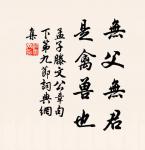 無父無君
是禽獸也
孟子滕文公章句
下第九節詞典網
集